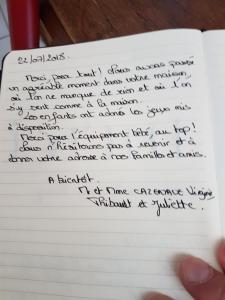 22/07/2018.
Merci pour tout! Nous avons passé
un agréable moment dans votre maison,
où l'on ne manque de rien et où l'on
s'y sent comme à la maison.
Les enfants ont adoré les jeux mis
à disposition.
Merci pour l'équipement bébé, au top!
Nous n'hésiterons pas à revenir et à
donner votre adresse à nos familles et amis.
A bientôt.
Mr et Mme CAZENAVE Virginie
Thibault et Juliette.